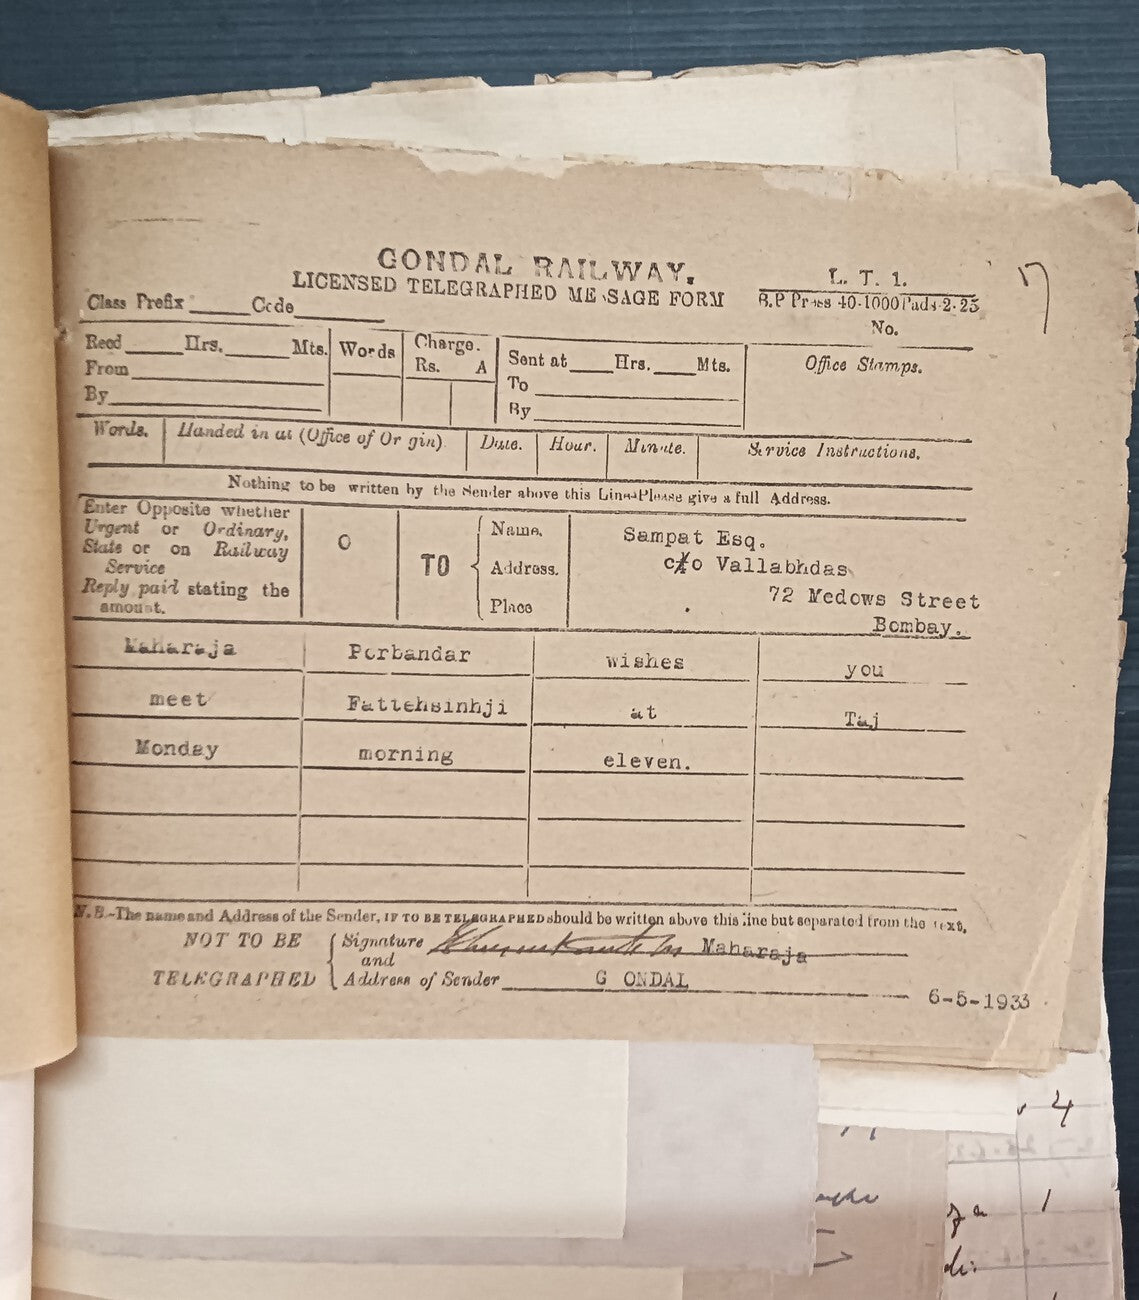 GONDAL RAILWAY.
LICENSED TELEGRAPHED MESSAGE FORM
L. T. 1.
G.P Press 40-1000 Pads-2-25
17
Class Prefix Code
No.
Recd Hrs. Mts.
From
By
Words
Charge.
Rs. A
Sent at Hrs. Mts.
To
By
Office Stamps.
Words. Handed in at (Office of Origin). Date. Hour. Minute. Service Instructions.
Nothing to be written by the Sender above this Line-Please give a full Address.
Enter Opposite whether
Urgent or Ordinary,
State or on Railway
Service
Reply paid stating the
amount.
O
TO
Name.
Address.
Place
Sampat Esq.
c/o Vallabhdas
72 Medows Street
Bombay.
Maharaja Porbandar wishes you
meet Fattehsinhji at Taj
Monday morning eleven.
N.B.-The name and Address of the Sender, IF TO BE TELEGRAPHED should be written above this line but separated from the text.
NOT TO BE
TELEGRAPHED
Signature Maharaja
and
Address of Sender G ONDAL
6-5-1933
4
1